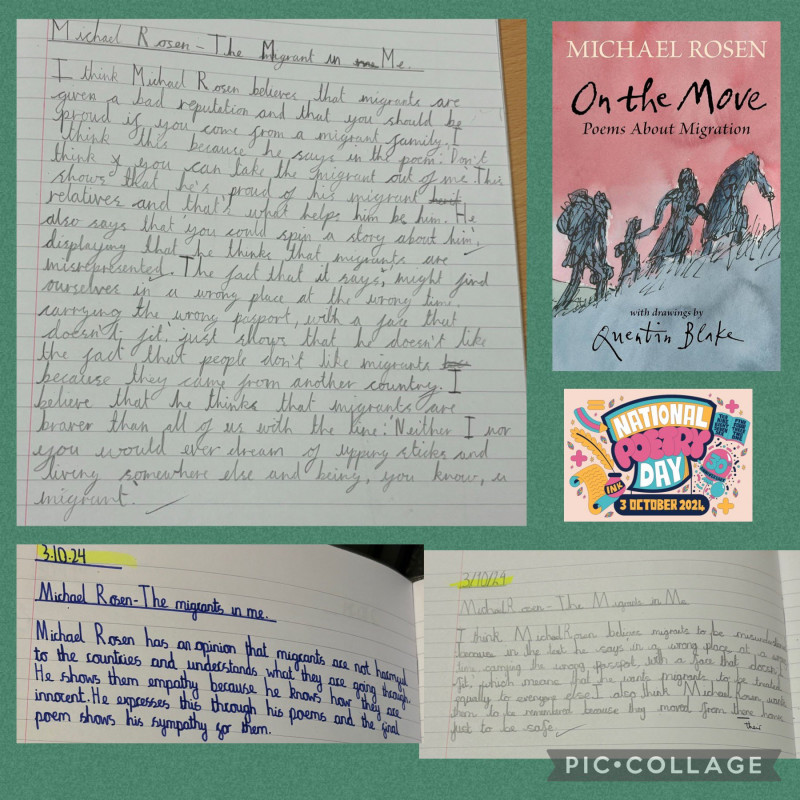 Michael Rosen - The Migrant in Me.
I think Michael Rosen believes that migrants are
given a bad reputation and that you should be
proud if you come from a migrant family. I
think this because he says in the poem: 'Don't
think you can take the migrant out of me. This
shows that he's proud of his migrant
relatives and that's what helps him be him. He
also says that 'you could spin a story about him',
displaying that he thinks that migrants are
misrepresented. The fact that it says, 'might find
ourselves in a wrong place at the wrong time,
carrying the wrong pasport, with a face that
doesn't fit.' just shows that he doesn't like
the fact that people don't like migrants
because they came from another country. I
believe that he thinks that migrants are
braver than all of us with the line: 'Neither I nor
you would ever dream of upping sticks and
living somewhere else and being, you know, a
migrant.
MICHAEL ROSEN
On the Move
Poems About Migration
with drawings by
Quentin Blake
NATIONAL
POETRY
DAY
30
INK
3 OCTOBER 2024
3.10.24
Michael Rosen - The migrants in me.
Michael Rosen has an opinion that migrants are not
to the countries and understands what they are going through.
He shows them empathy because he knows how they are
innocent. He expresses this through his poems and the final
poem shows his sympathy for them.
3/10/24
Michael Rosen - The Migrants in Me
I think Michael Rosen believes migrants to be
because in the text he says 'in a wrong place at a
time, carrying the wrong passport, with a face that doesn't
fit', which means that he wants migrants to be treated
equally to everyone else. I also think Michael Rosen wants
them to be remembered because they moved from there
just to be safe.
their
PIC•COLLAGE